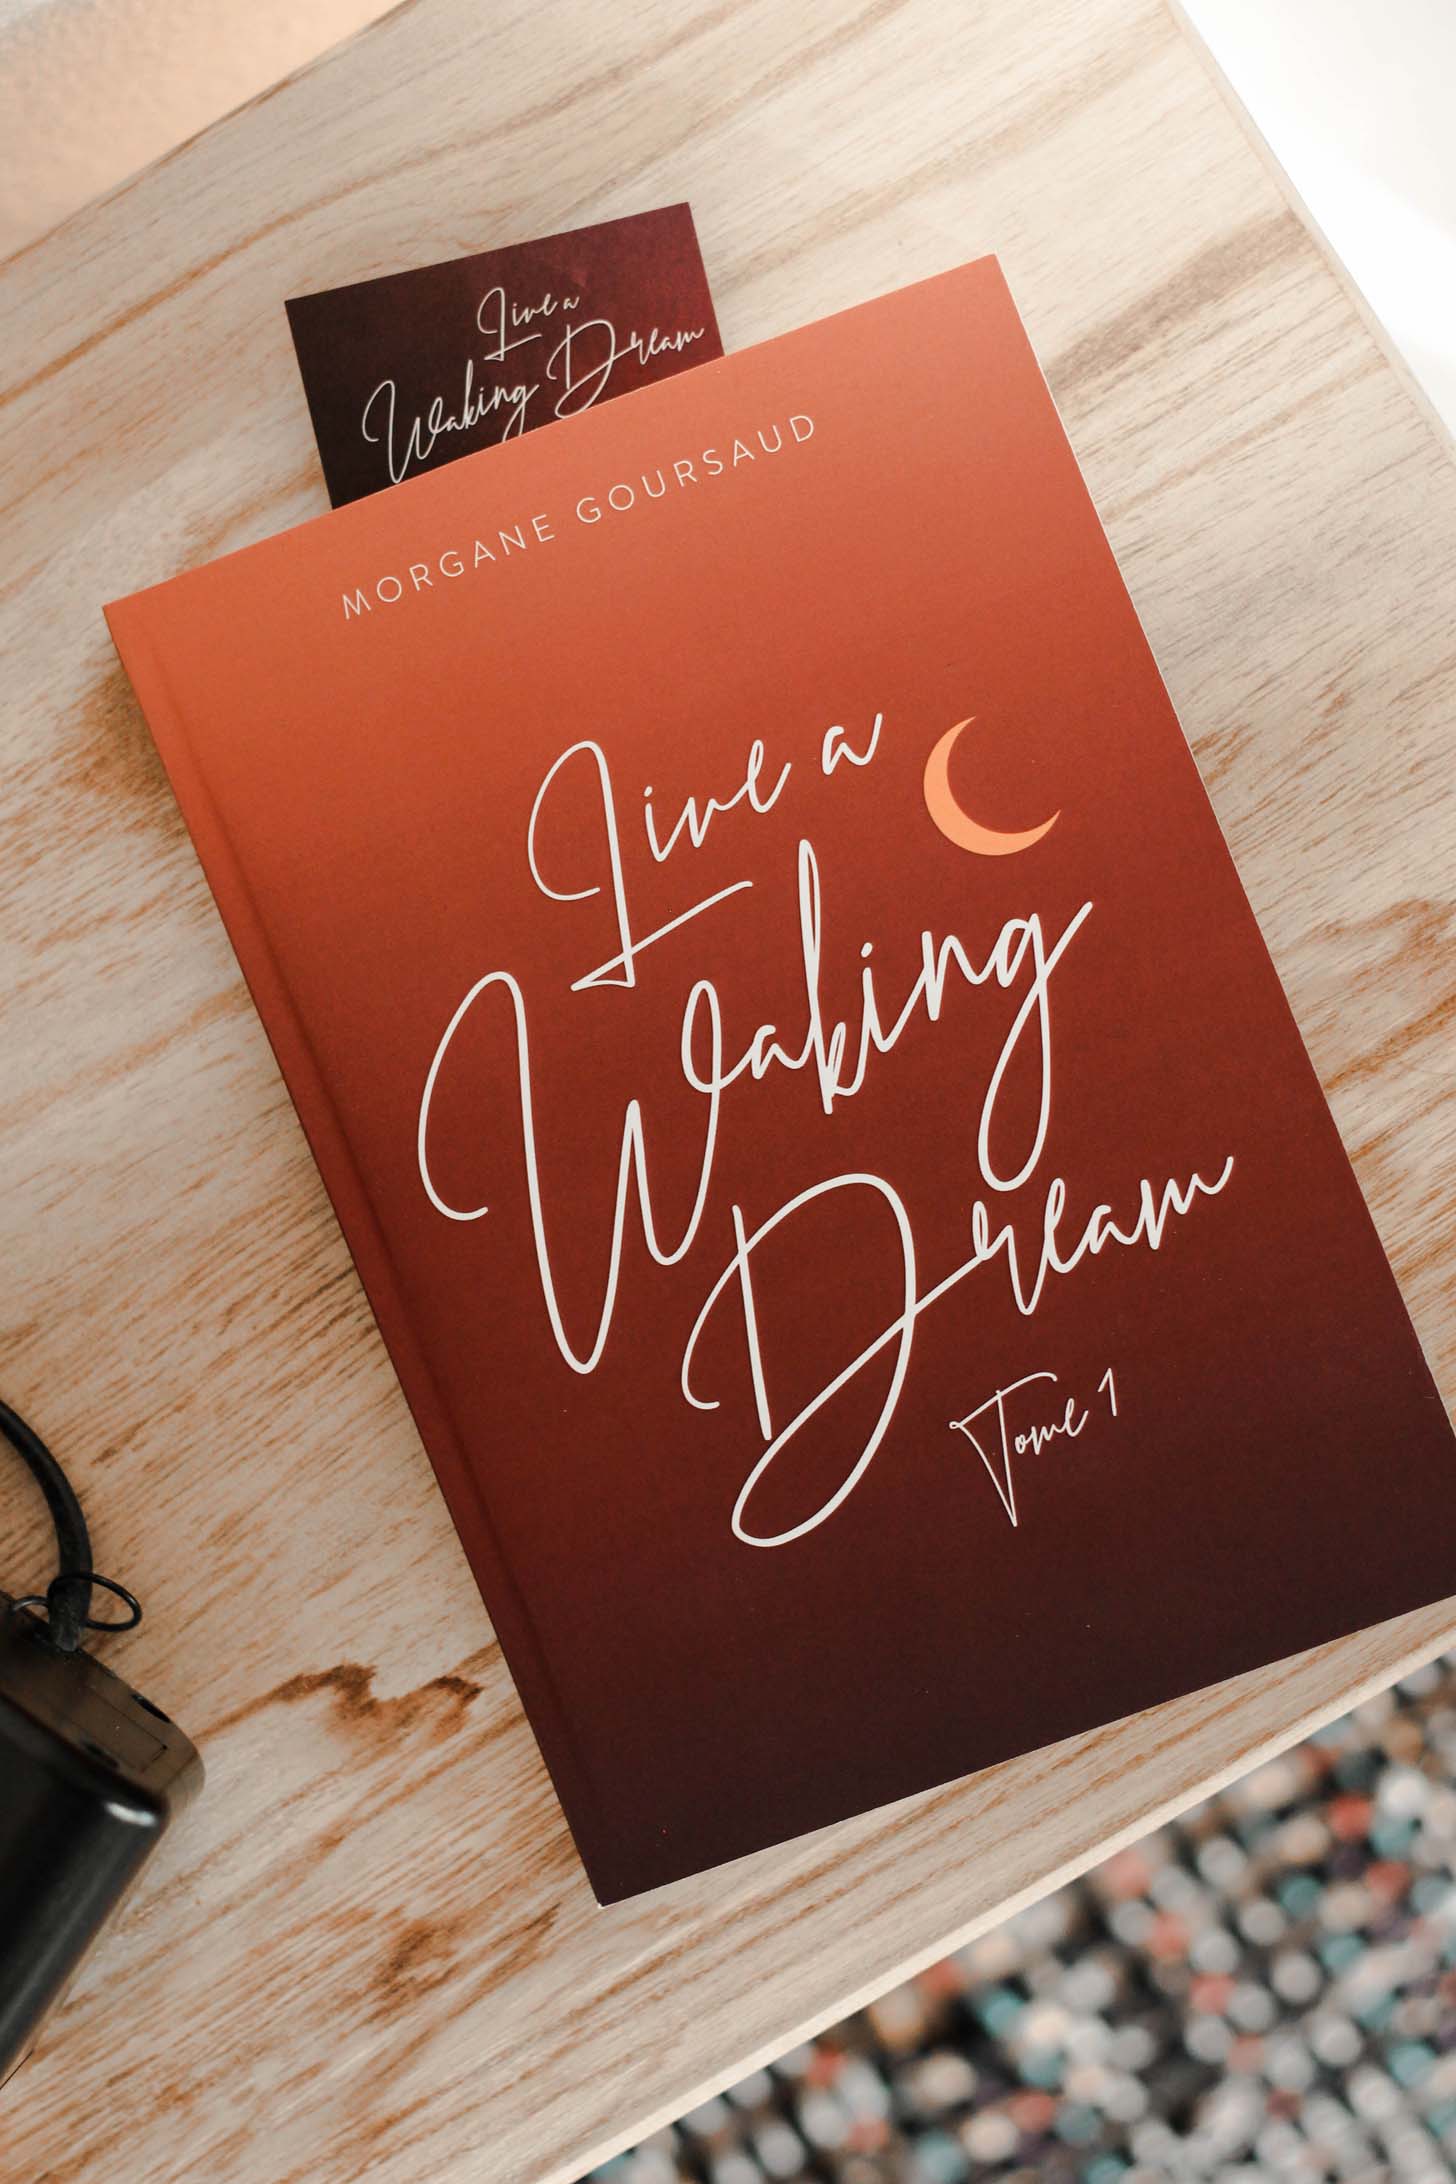 Live a
Waking Dream
MORGANE GOURSAUD
Live a
Waking
Dream
Tome 1